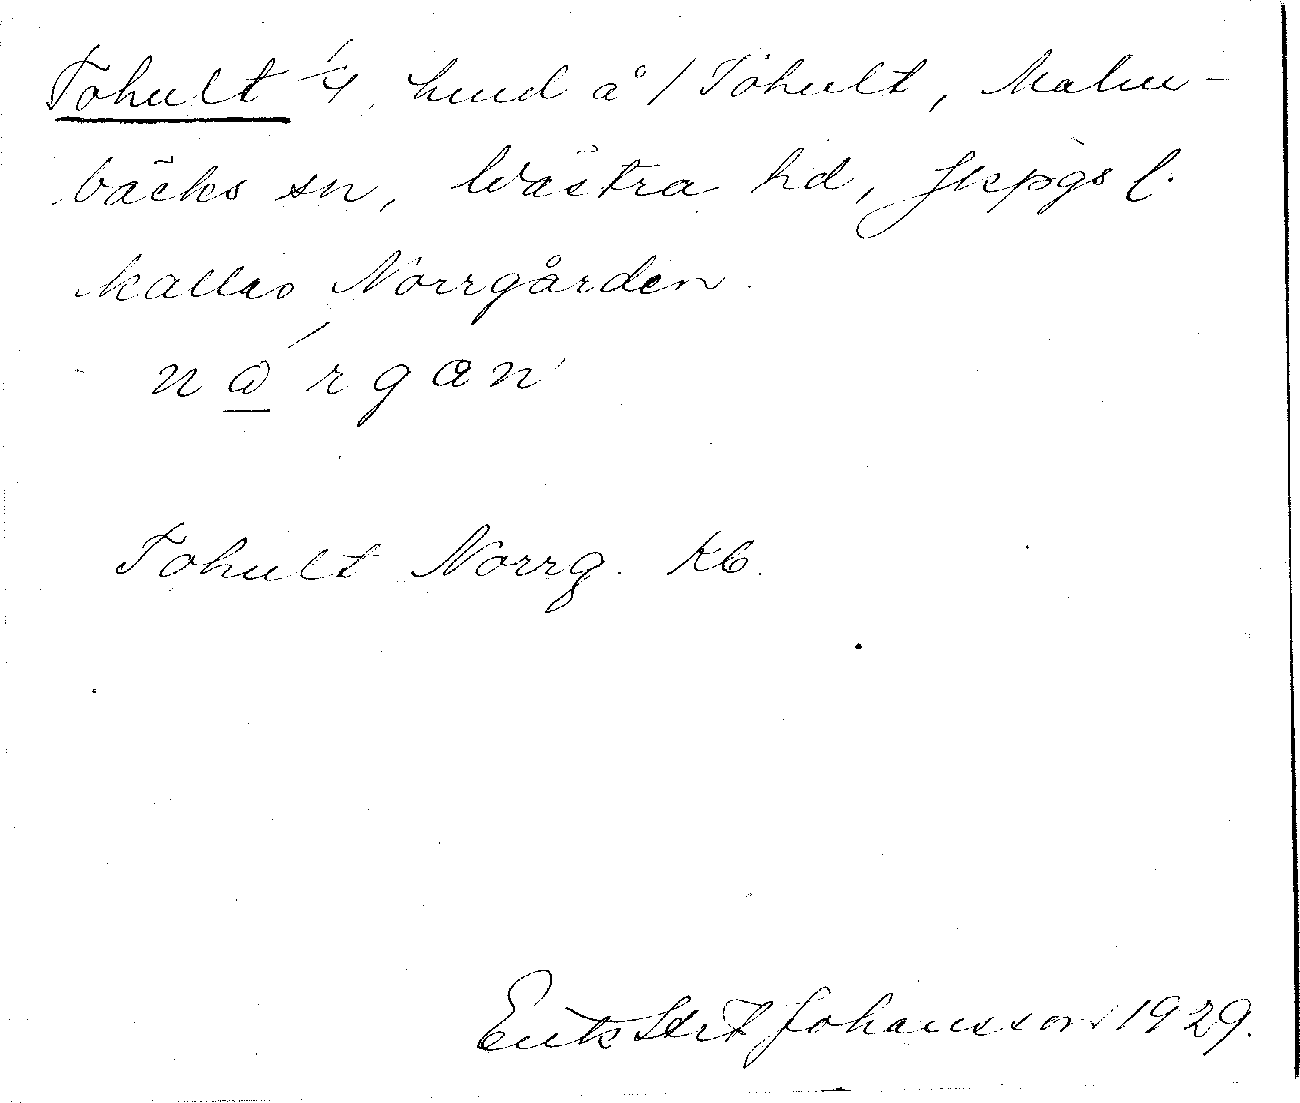 Tohult 1/4, hmd å 1 Tohult, Malm-
bäcks sn, Västra hd, Jkpgs l.
kallas Norrgården.
nɷ́rgan
Tohult Norrg. Kb.
Johansson 1929.